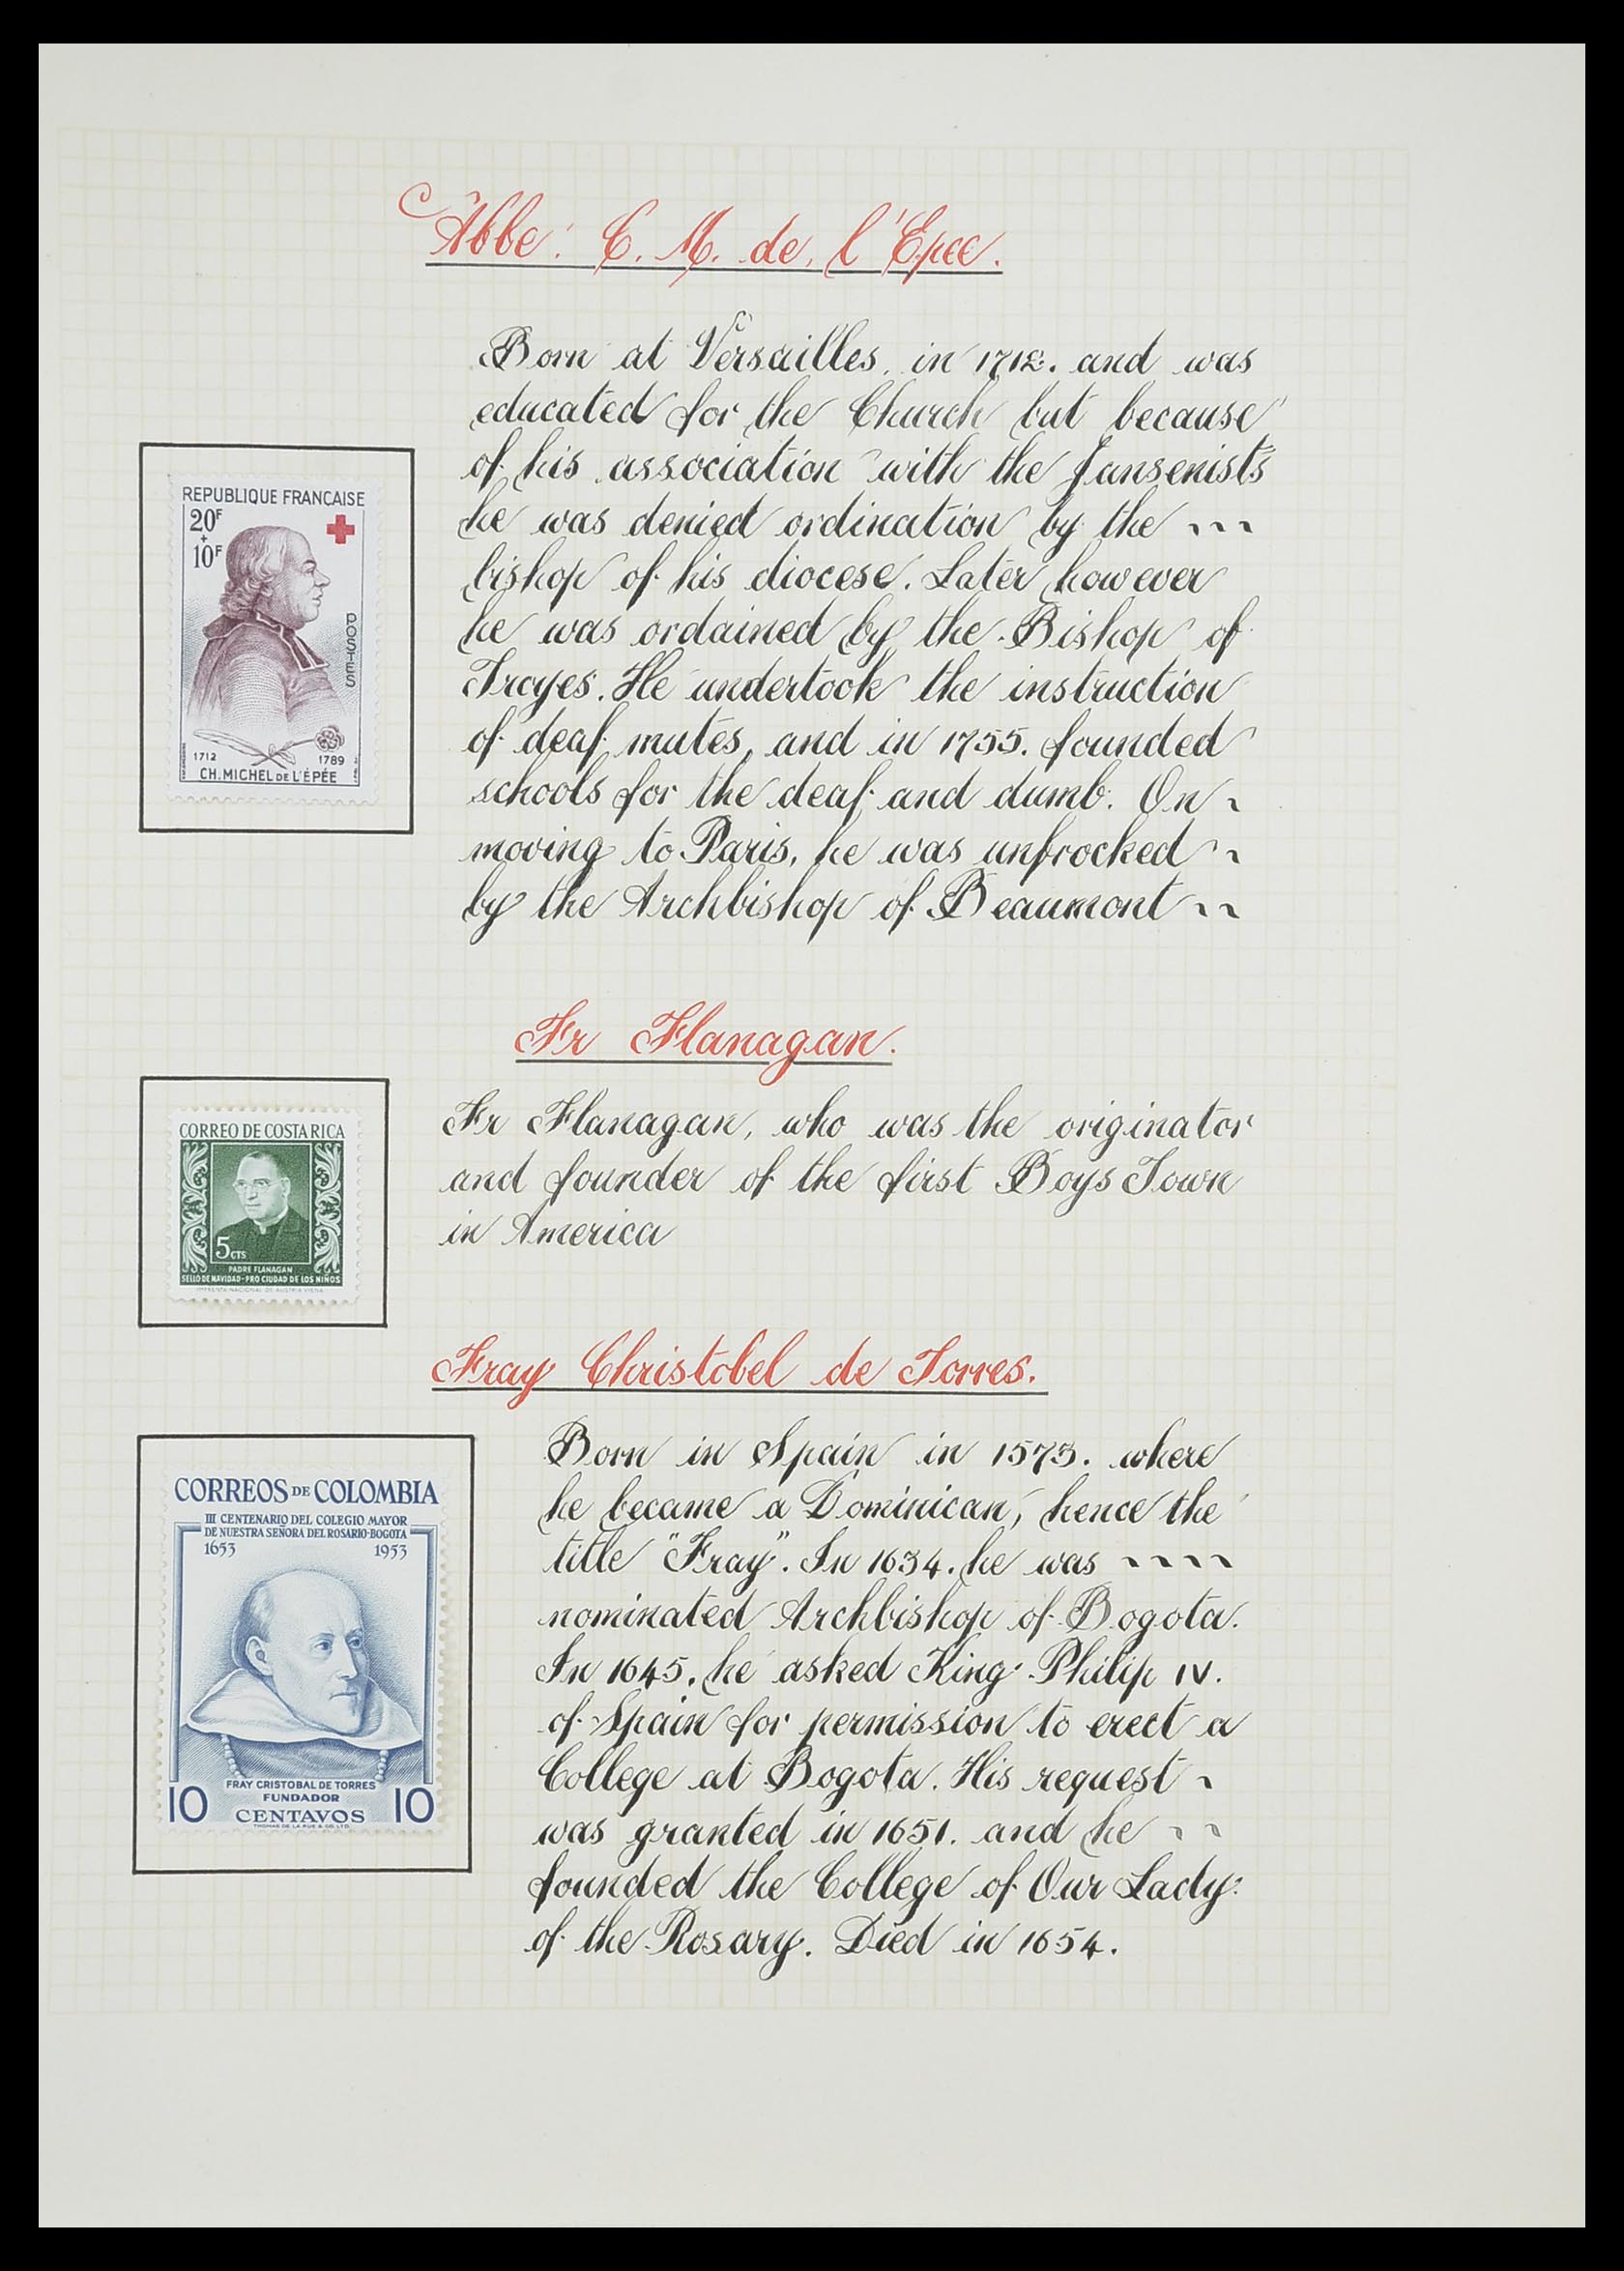 Abbe: C. M. de. l'Epee.
Born at Versailles. in 1712. and was
educated for the Church but because
of his association with the Jansenists
he was denied ordination by the ~~~
bishop of his diocese. Later however
he was ordained by the Bishop of
Troyes. He undertook the instruction
of deaf mutes, and in 1755. founded
schools for the deaf and dumb. On ~
moving to Paris, he was unfrocked ~
by the Archbishop of Beaumont ~~
REPUBLIQUE FRANCAISE
20F
+
10F
POSTES
1712 1789
CH. MICHEL DE L'ÉPÉE
Fr Flanagan.
Fr Flanagan, who was the originator
and founder of the first Boys Town
in America
CORREO DE COSTA RICA
5 CTS
PADRE FLANAGAN
SELLO DE NAVIDAD-PRO CIUDAD DE LOS NIÑOS
IMPRENTA NACIONAL DE AUSTRIA VIENA
Fray Christobel de Torres.
Born in Spain in 1573. where
he became a Dominican, hence the
title "Fray". In 1634. he was ~~~~
nominated Archbishop of Bogota.
In 1645. he asked King Philip IV.
of Spain for permission to erect a
College at Bogota. His request ~
was granted in 1651. and he ~~
founded the College of Our Lady
of the Rosary. Died in 1654.
CORREOS DE COLOMBIA
III CENTENARIO DEL COLEGIO MAYOR
DE NUESTRA SEÑORA DEL ROSARIO-BOGOTA
1653 1953
FRAY CRISTOBAL DE TORRES
FUNDADOR
10 CENTAVOS 10
THOMAS DE LA RUE & CO. LTD.